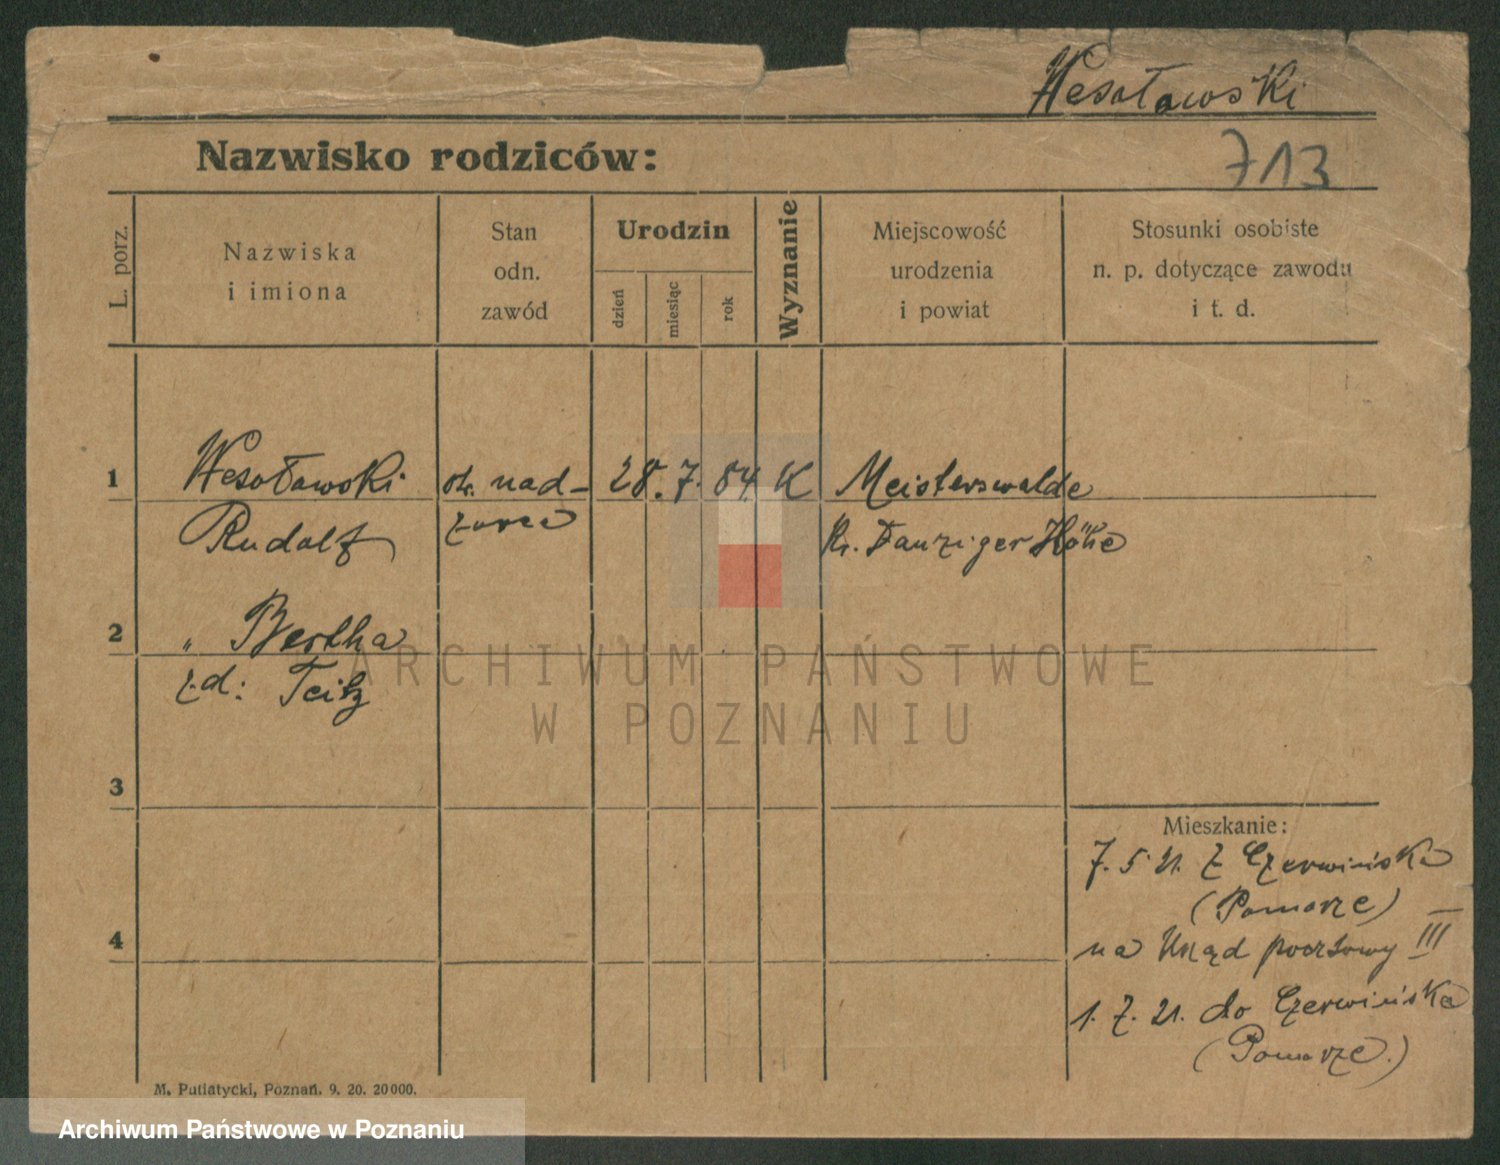 Wesołowski
Nazwisko rodziców:
713
L. porz.
Nazwiska
i imiona
Stan
odn.
zawód
Urodzin
dzień
miesiąc
rok
Wyznanie
Miejscowość
urodzenia
i powiat
Stosunki osobiste
n. p. dotyczące zawodu
i t. d.
1
Wesołowski nad- 28. 7. 84 K Meisterswalde
Rudolf zorca Kr. Danziger Höhe
2
" Bertha
z.d:
ARCHIWUM PAŃSTWOWE
W POZNANIU
3
Mieszkanie:
7. 5 21. z Czerwińska
(Pomorze)
4
na Urząd pocztowy III
1. 7. 21. do Czerwińska
(Pomorze.)
M. Putiatycki, Poznań. 9. 20. 20000.
Archiwum Państwowe w Poznaniu